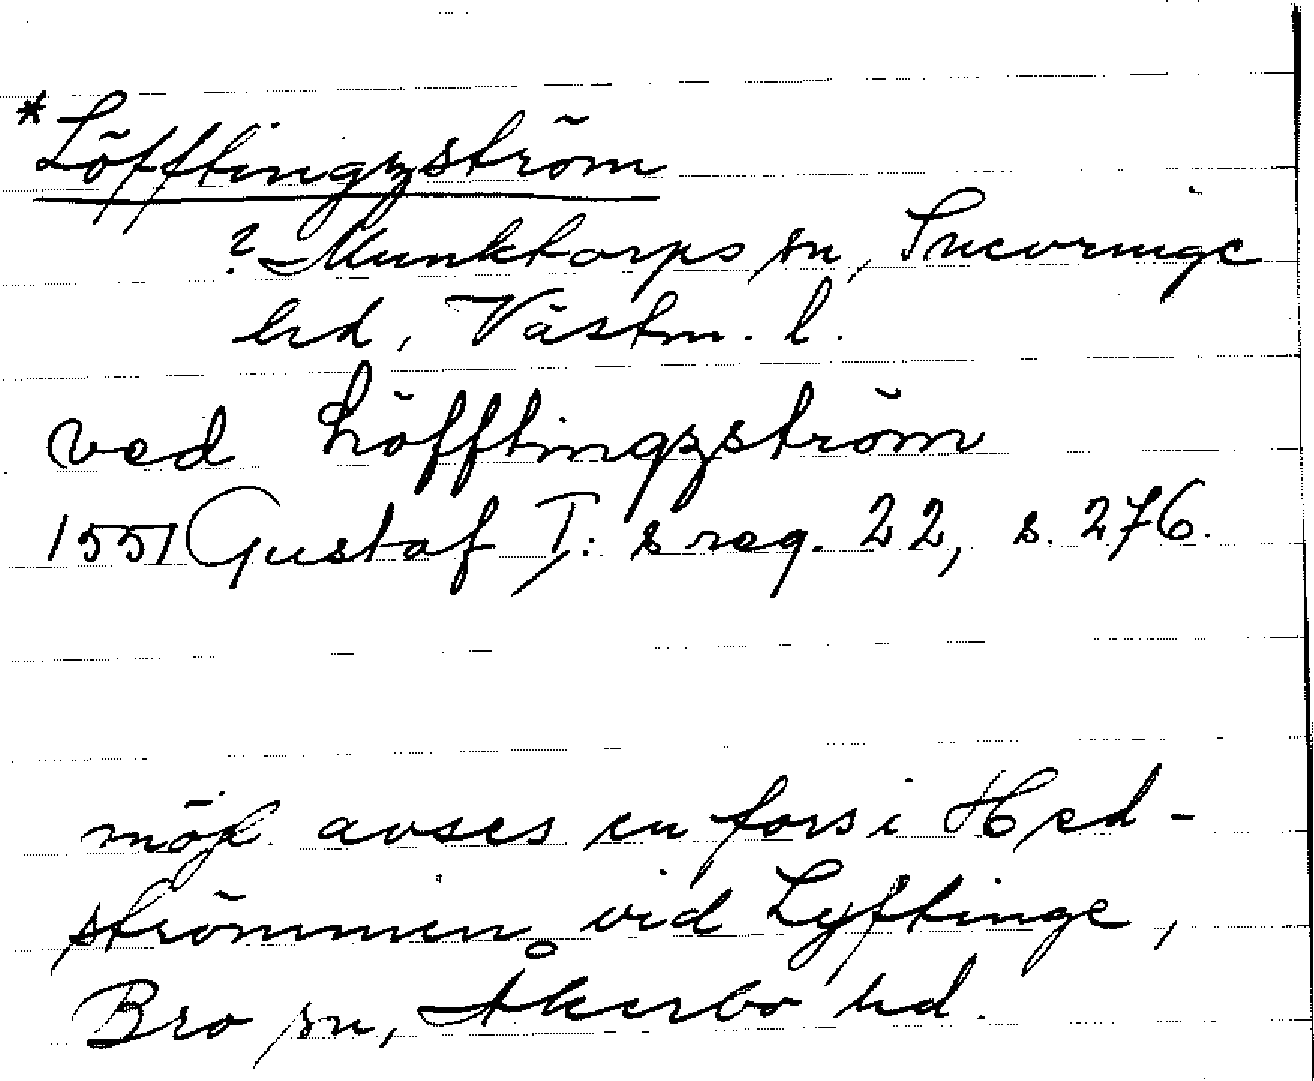 *Löfftingzström
? Munktorps sn, Snevringe
hd, Västm. l.
ved Löfftingzström
1551 Gustaf I:s reg. 22, s. 276.
möjl. avses en fors i Hed-
strömmen vid Lyftinge,
Bro sn, Åkerbo hd.